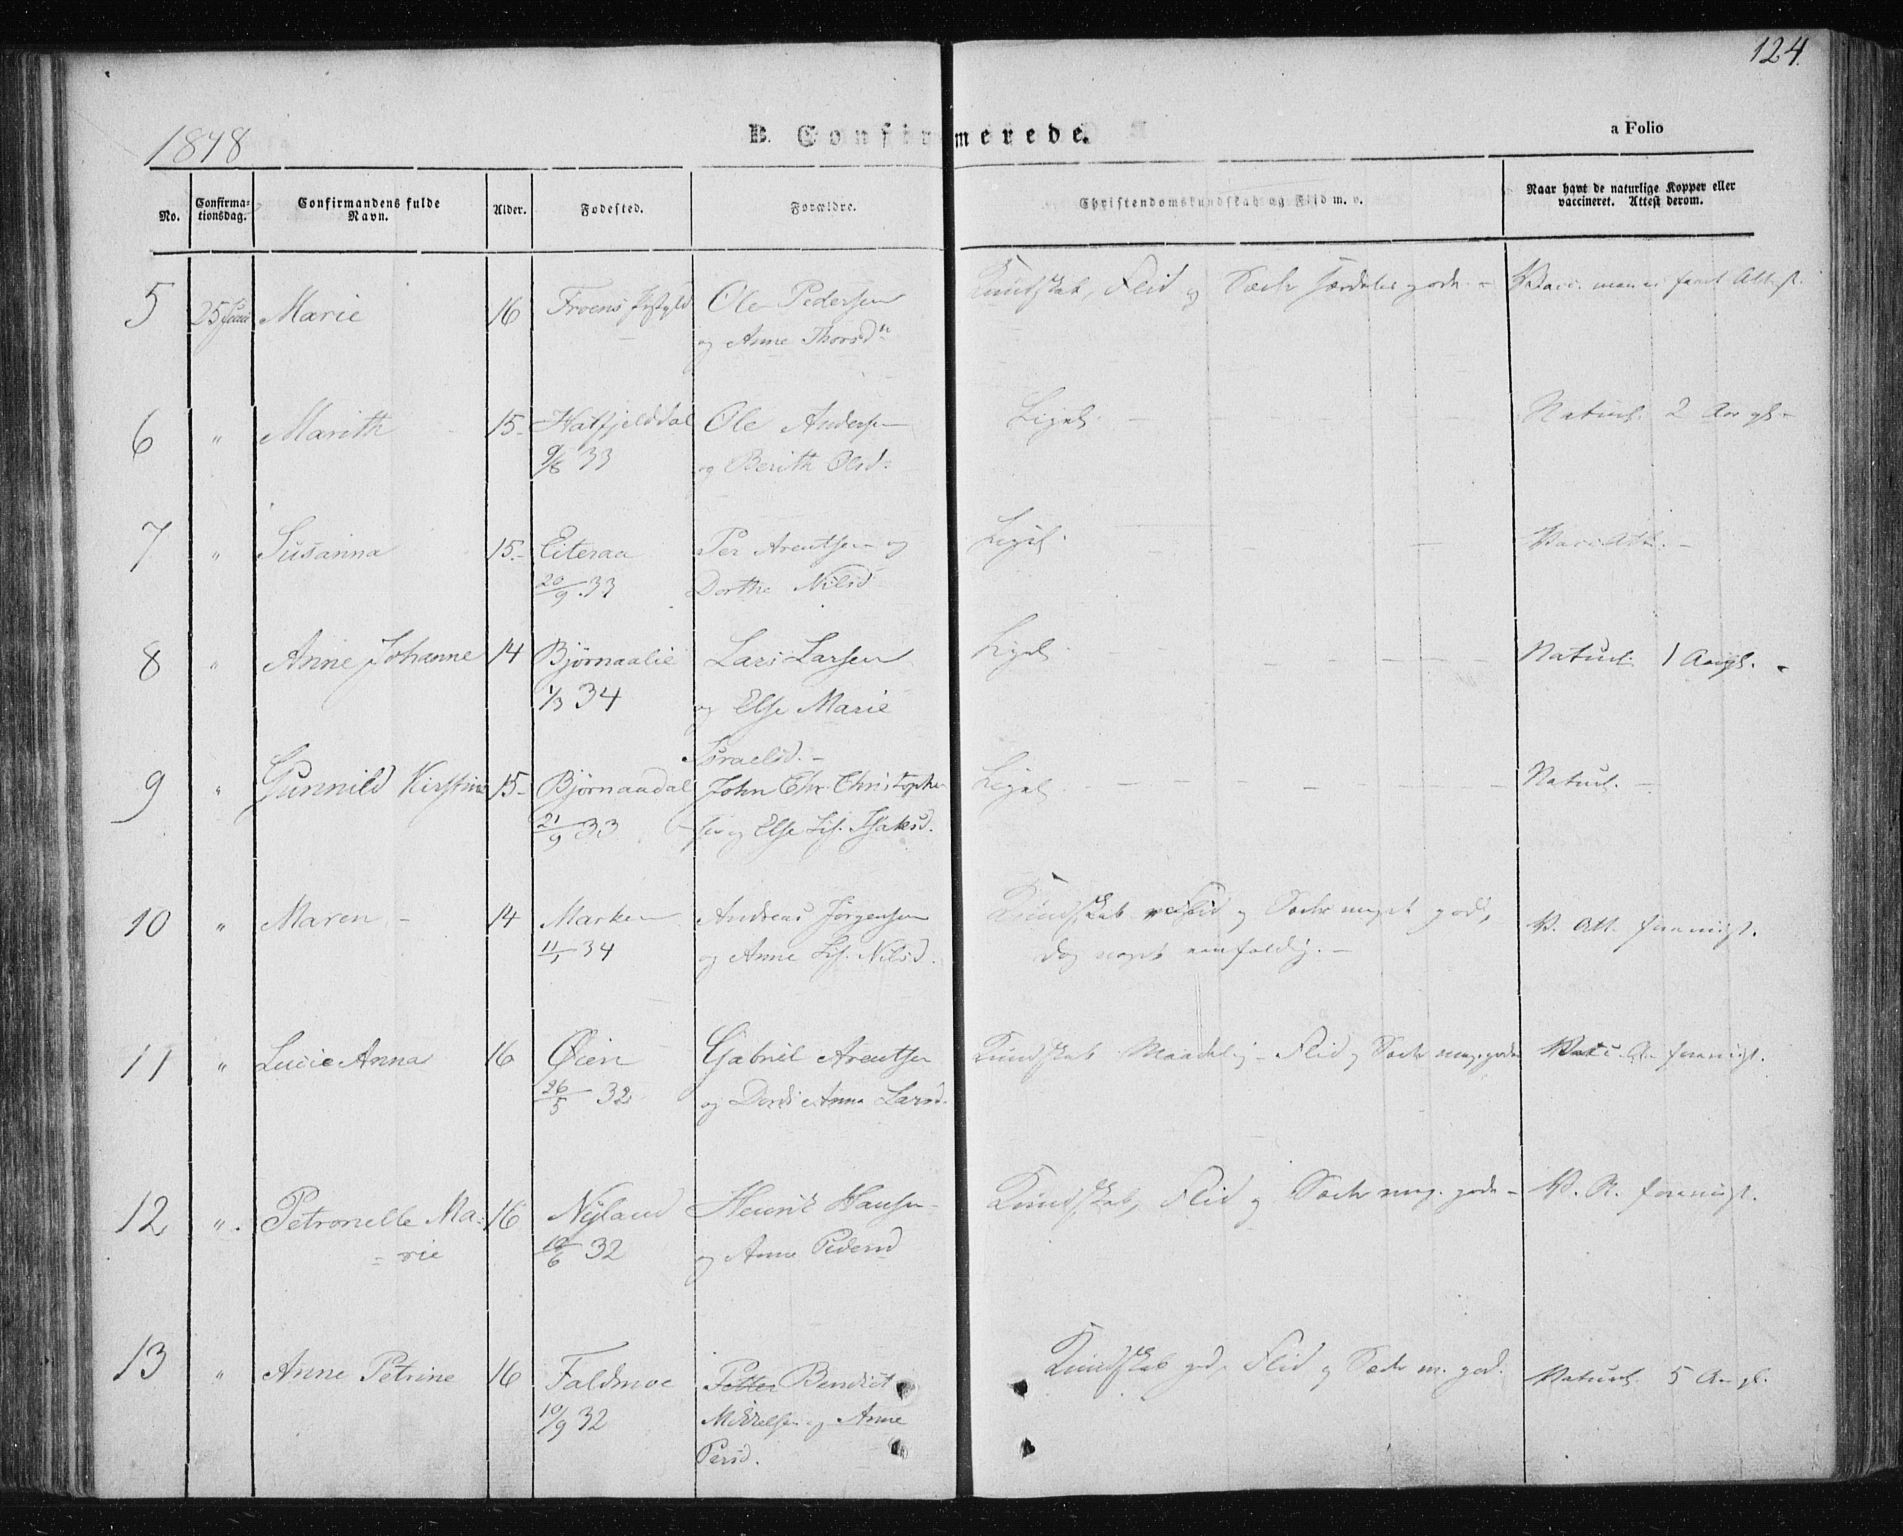 124.
1848
B. Confirmerede.
a Folio
No.
Confirma-
tionsdag.
Confirmandens fulde
Navn.
Alder.
Fødested.
Forældre.
Christendomskundskab og Flid m. v.
Naar havt de naturlige Kopper eller
vaccineret. Attest derom.
5 25 Juni Marie 16 Ole Pedersen Kundskab, Flid og Sæder særdeles gode. -
og Anne Thorsdn
6 " Marith 15 - Hatfjelddal Ole Andersen Ligel. Naturl. 2 Aar gl -
9/8 33 og Berith Olsd.
7 " Susanna 15 - Eiteraa Per Arentsen og Ligel. Vac. Att. -
20/9 33 Dorthe Nilsd
8 " Anne Johanne 14 Bjørnaalie Lars Larsen Ligel. Naturl. 1 Aargl. -
1/3 34 og Else Marie
Israelsd. -
9 " Gunnild Kirstine 15 - Bjørnaadal John Chr. Christophe- Ligel. Naturl. -
21/9 33 sen og Else Lis. Isaksd.
10 " Maren - 14 Marken Andreas Jørgensen Kundskab Flid og Sæder meget god,
11/1 34 og Anne Lis. Nilsd. dog noget eenfoldig. - V. Att. fremvist.
11 " Lucie Anna 16 Øien Gabriel Arentsen Kundskab Maadelig - Flid og Sæder meg. gode Vacc. A. fremvist.
26/5 32 og Dordie Anna Larsd.
12 " . Petronelle Ma- 16 Nyland Henrik Hansen - Kundskab, Flid og Sæder meg. gode - V. A. fremvist.
= rie /6 32 og Anne Pedersd
13 " Anne Petrine 16 Faldmoe Petter Bendict Kundskab god, Flid og Sæder m. god. Naturl. 5 Aar gl.
10/9 32 Mikkelsen og Anne
Persd.